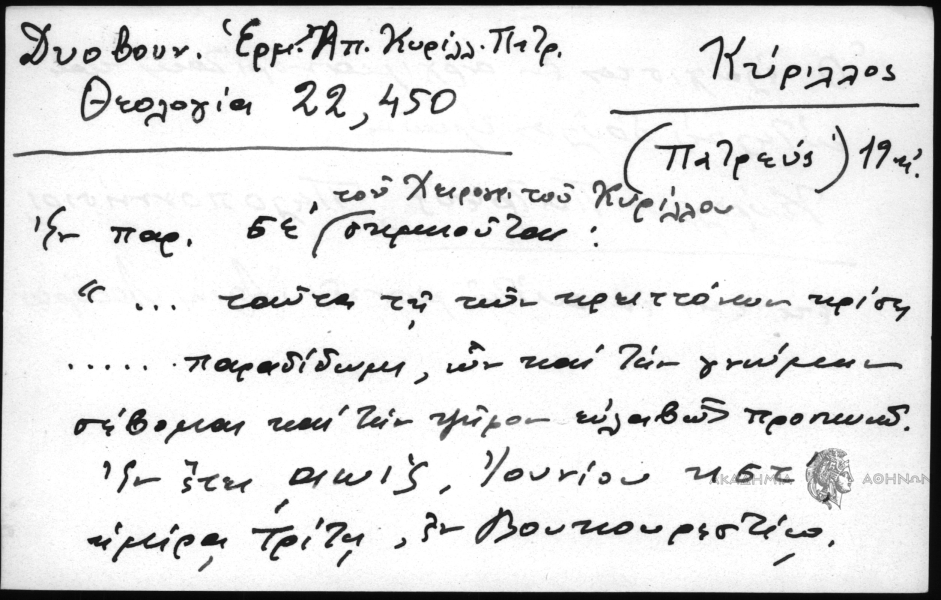 Δυοβουν. Ἑρμ. Ἀπ. Κυρίλλ. Πατρ.
Θεολογία 22, 450
Κύριλλος
(Πατρεύς) 19
τοῦ Χειρογρ. τοῦ Κυρίλλου
Ἐν παρ. σημειοῦται:
“... ταῦτα τῇ τῶν κρειττόνων κρίσει
..... παραδίδωμι, ὧν καὶ τὴν γνώμην
σέβομαι καὶ τὴν ψῆφον εὐλαβῶς προσκυνῶ.
Ἐν ἔτει αωιζ, Ἰουνίου
ἡμέρᾳ τρίτῃ, ἐν Βουκουρεστίῳ.
ΑΚΑΔΗΜΙΑ ΑΘΗΝΩΝ